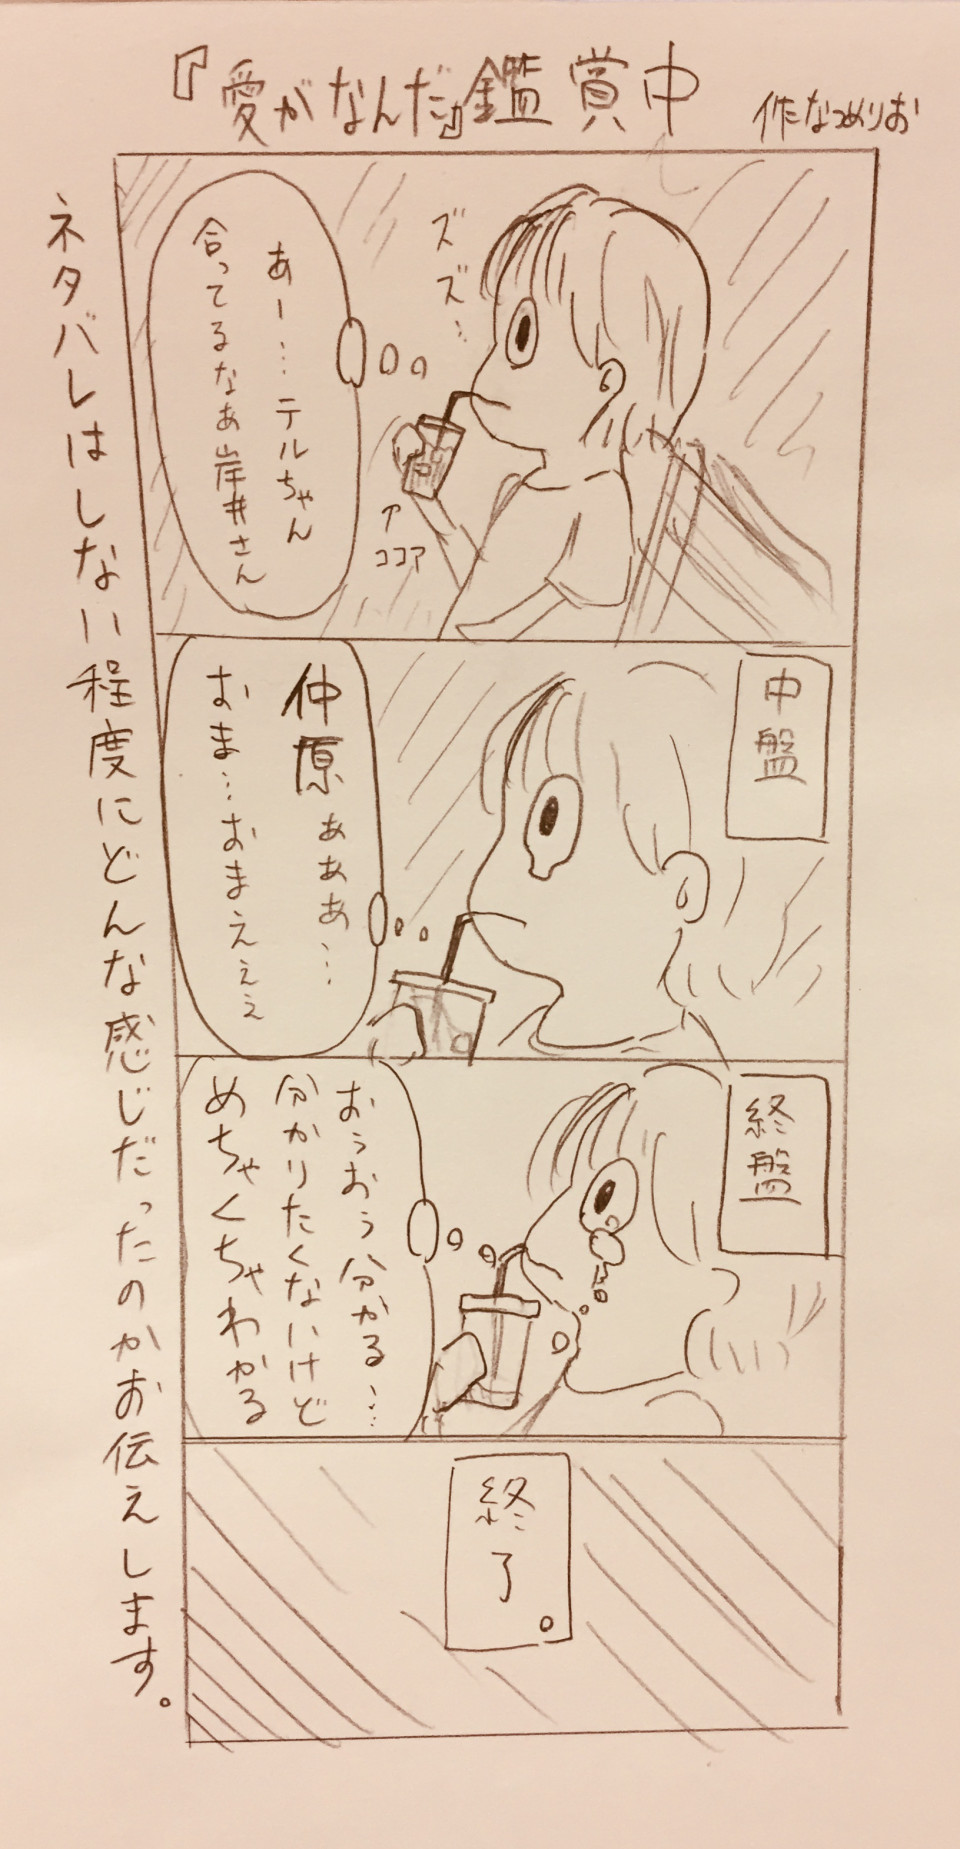 『愛がなんだ』鑑賞中
作:なつめりお
ネタバレはしない程度にどんな感じだったのかお伝えします。
ズズ…
あー…テルちゃん
合ってるなぁ岸井さん
↑
ココア
中盤
仲原ぁぁぁ…
おま…おまえぇぇ
終盤
おぅおぅ分かる…
分かりたくないけど
めちゃくちゃわかる
終了。